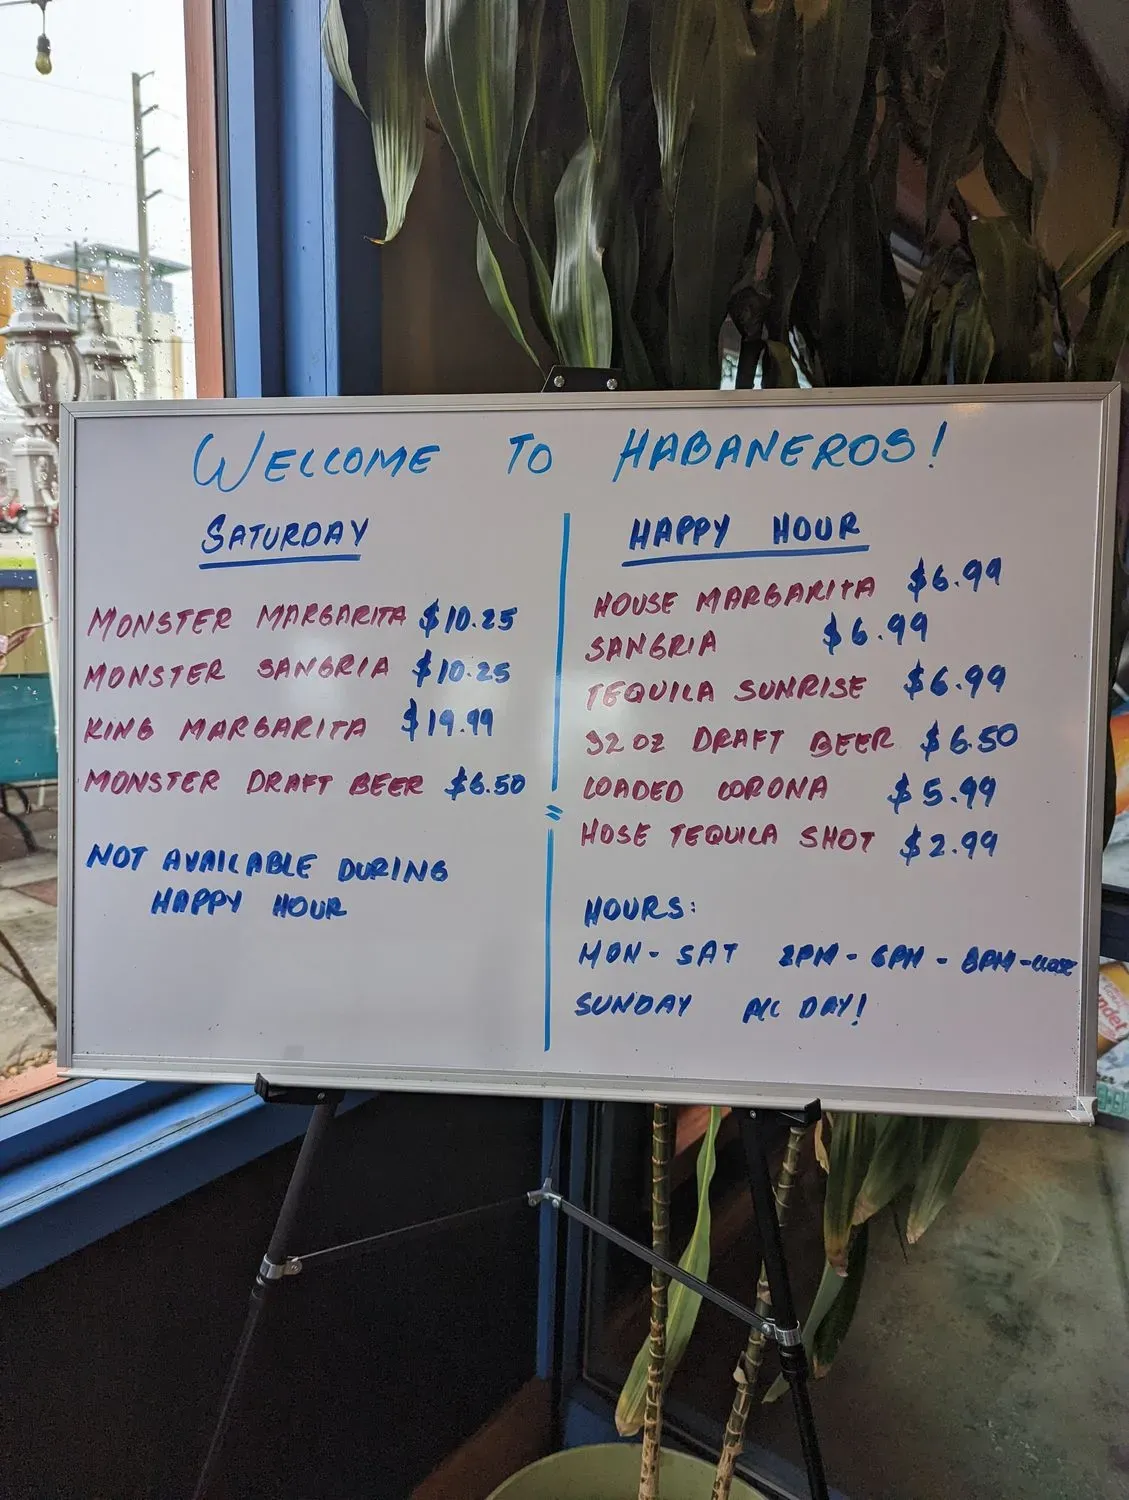 WELCOME TO HABANEROS!
SATURDAY
MONSTER MARGARITA $10.25
MONSTER SANGRIA $10.25
KING MARGARITA $19.99
MONSTER DRAFT BEER $6.50
NOT AVAILABLE DURING
HAPPY HOUR
HAPPY HOUR
HOUSE MARGARITA $6.99
SANGRIA $6.99
TEQUILA SUNRISE $6.99
32 OZ DRAFT BEER $6.50
LOADED CORONA $5.99
HOSE TEQUILA SHOT $2.99
HOURS:
MON - SAT 2PM - 6PM - 8PM - CLOSE
SUNDAY ALL DAY!